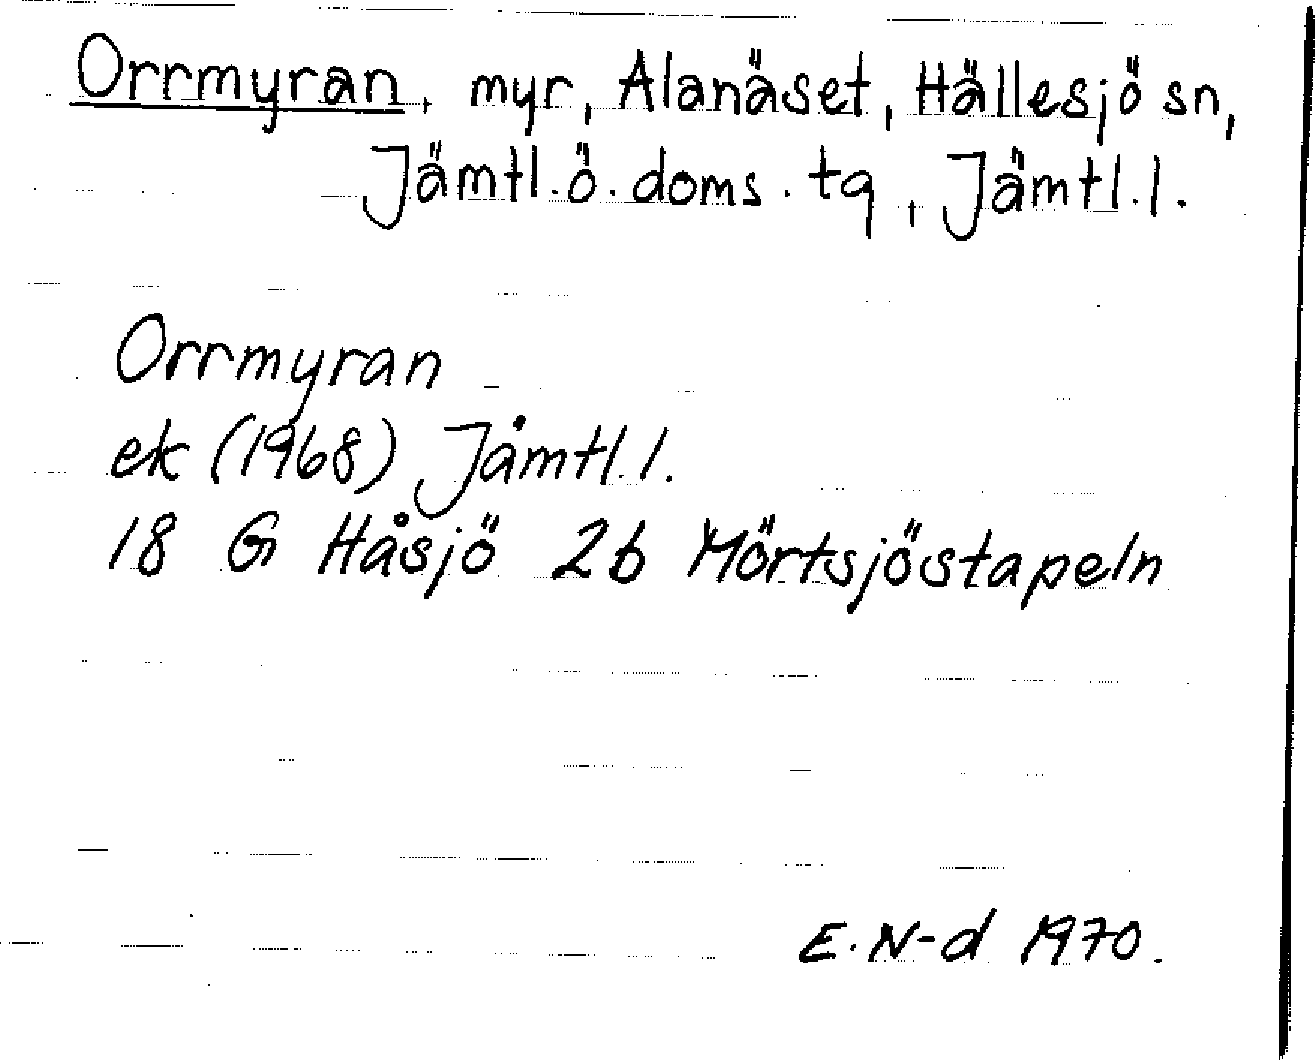 Orrmyran, myr, Alanäset, Hällesjö sn,
Jämtl. ö. doms. tg, Jämtl. l.
Orrmyran
ek (1968) Jämtl. l.
18 G Håsjö 2b Mörtsjöstapeln
E. N-d 1970.